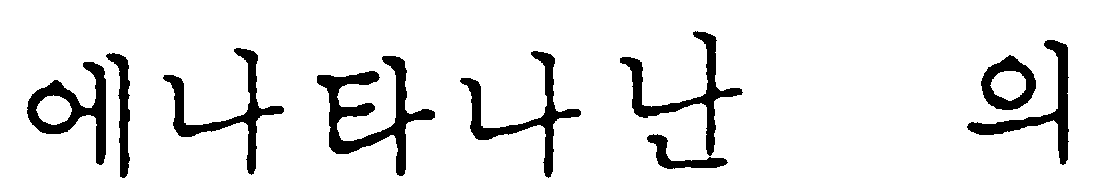 에나타나난 의